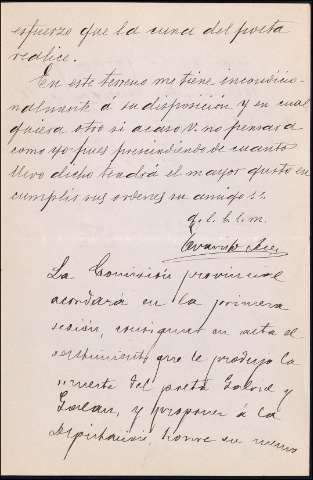 esfuerzo que la cuna del poeta
realice.
En este terreno me tiene incondicio-
nalmente á su disposición y en cual
quiera otro si acaso V. no pensara
como yo pues prescindiendo de cuanto
llevo dicho tendrá el mayor gusto en
cumplir sus ordenes su amigo s.s.
q. l. b. l. m.
La Comisión provincial
acordará en la primera
sesión, consignar en acta el
sentimiento que le produjo la
muerte del poeta Gabriel y
Galán, y proponer á la
Diputación, honre su memo